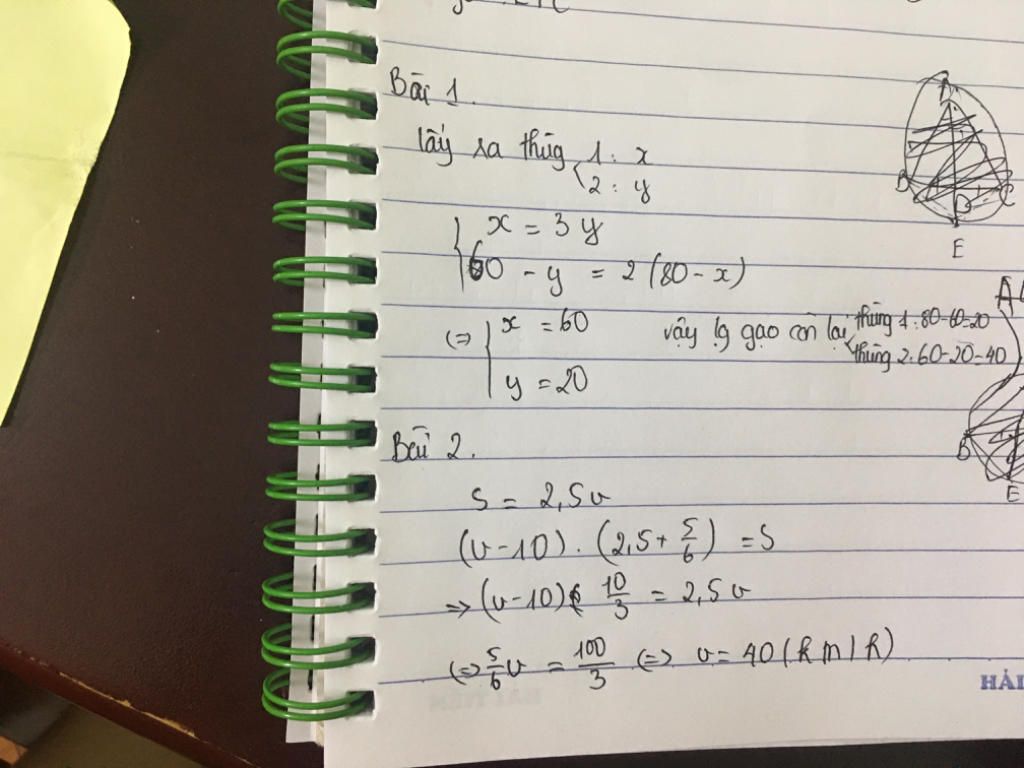 Bài 1.
lấy ra thùng 1 : x
2 : y
x = 3y
60 - y = 2 (80 - x)
(=) x = 60 vậy lg gạo còn lại thùng 1 : 80-60=20
y = 20 thùng 2: 60-20=40
Bài 2.
S = 2,5v
(v - 10) . (2,5 + 5/6) = S
=> (v - 10) 10/3 = 2,5 v
(=) 5/6 v = 100/3 (=) v = 40 (km/h)
D
C
E
B
E
HẢI